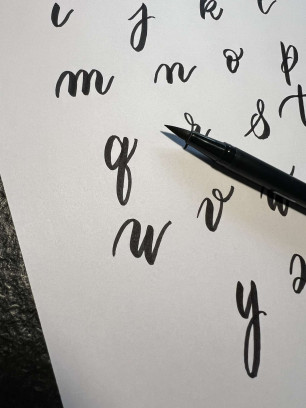 i j k l
m n o p
q r s t
v w
w
y z